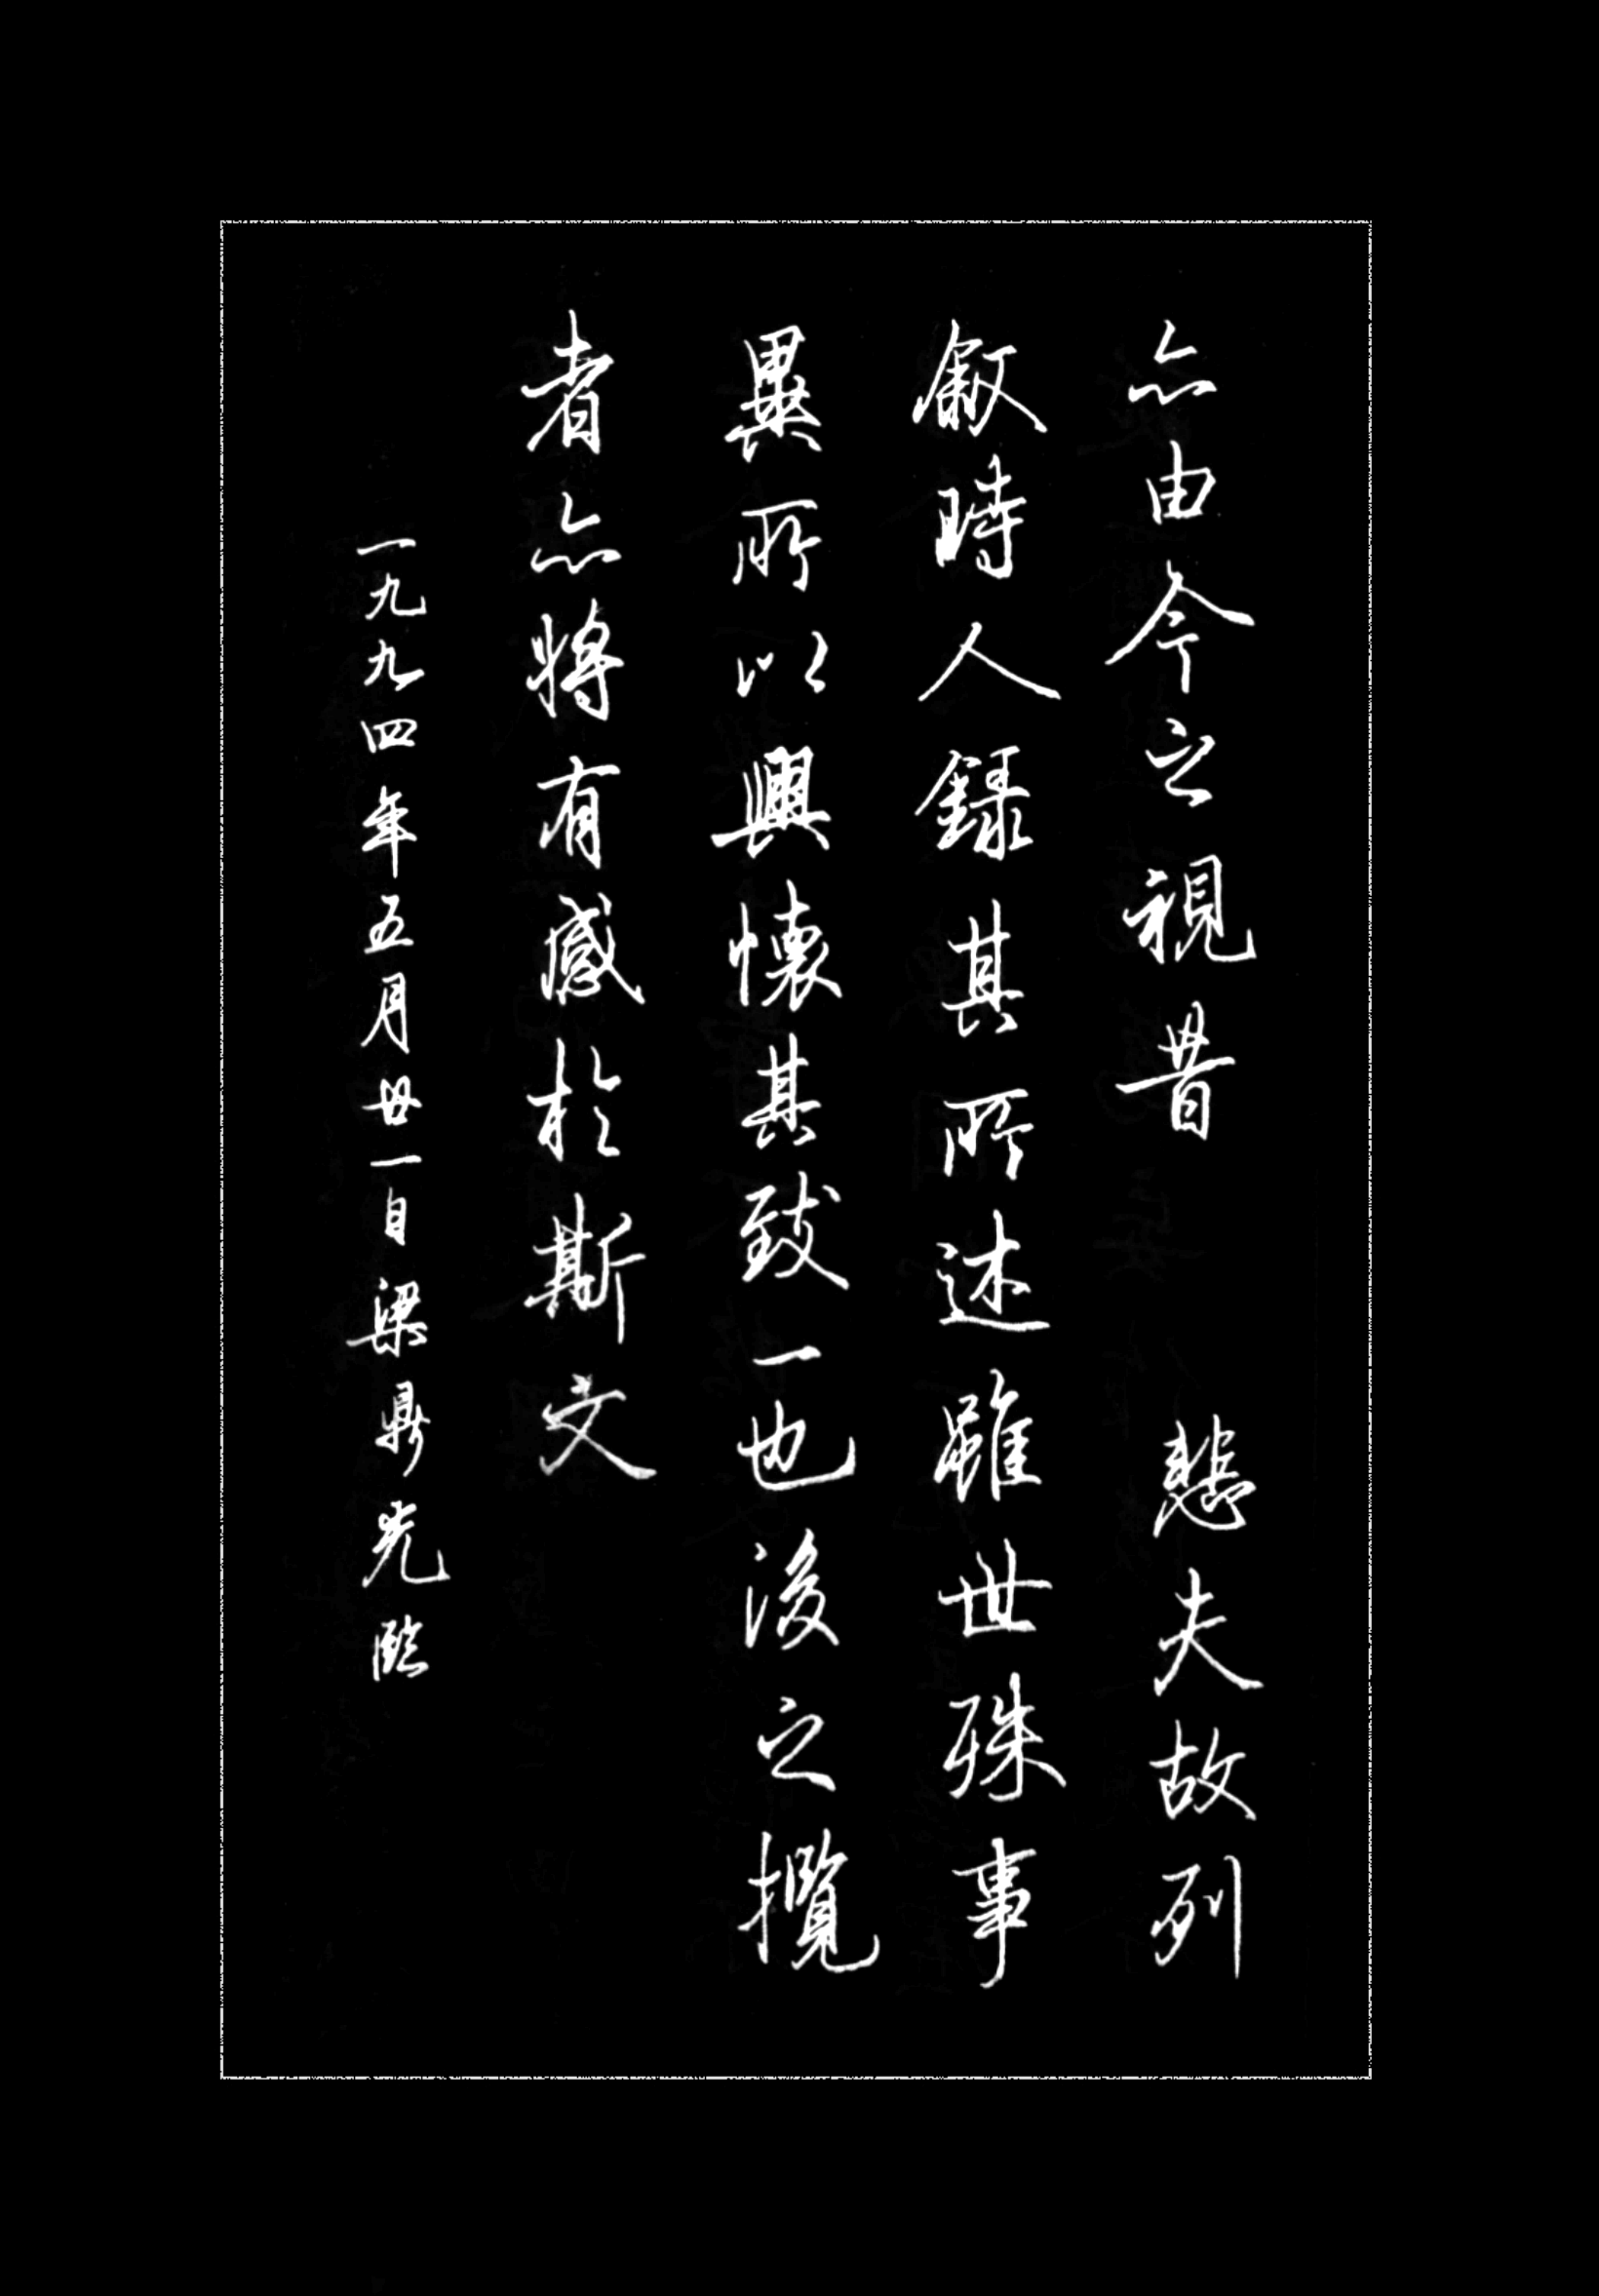 亦由今之視昔 悲夫故列
叙時人錄其所述雖世殊事
異所以興懷其致一也後之攬
者亦將有感於斯文
一九九四年五月廿一日梁鼎光臨